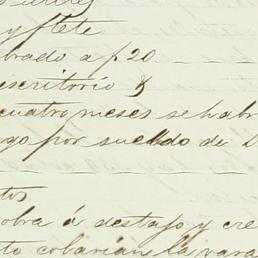 y flete
brado a p 20
escritorio &
cuatro meses se habr
go por sueldo de D
tos
obra á destajo y cre
to cobarian la vara